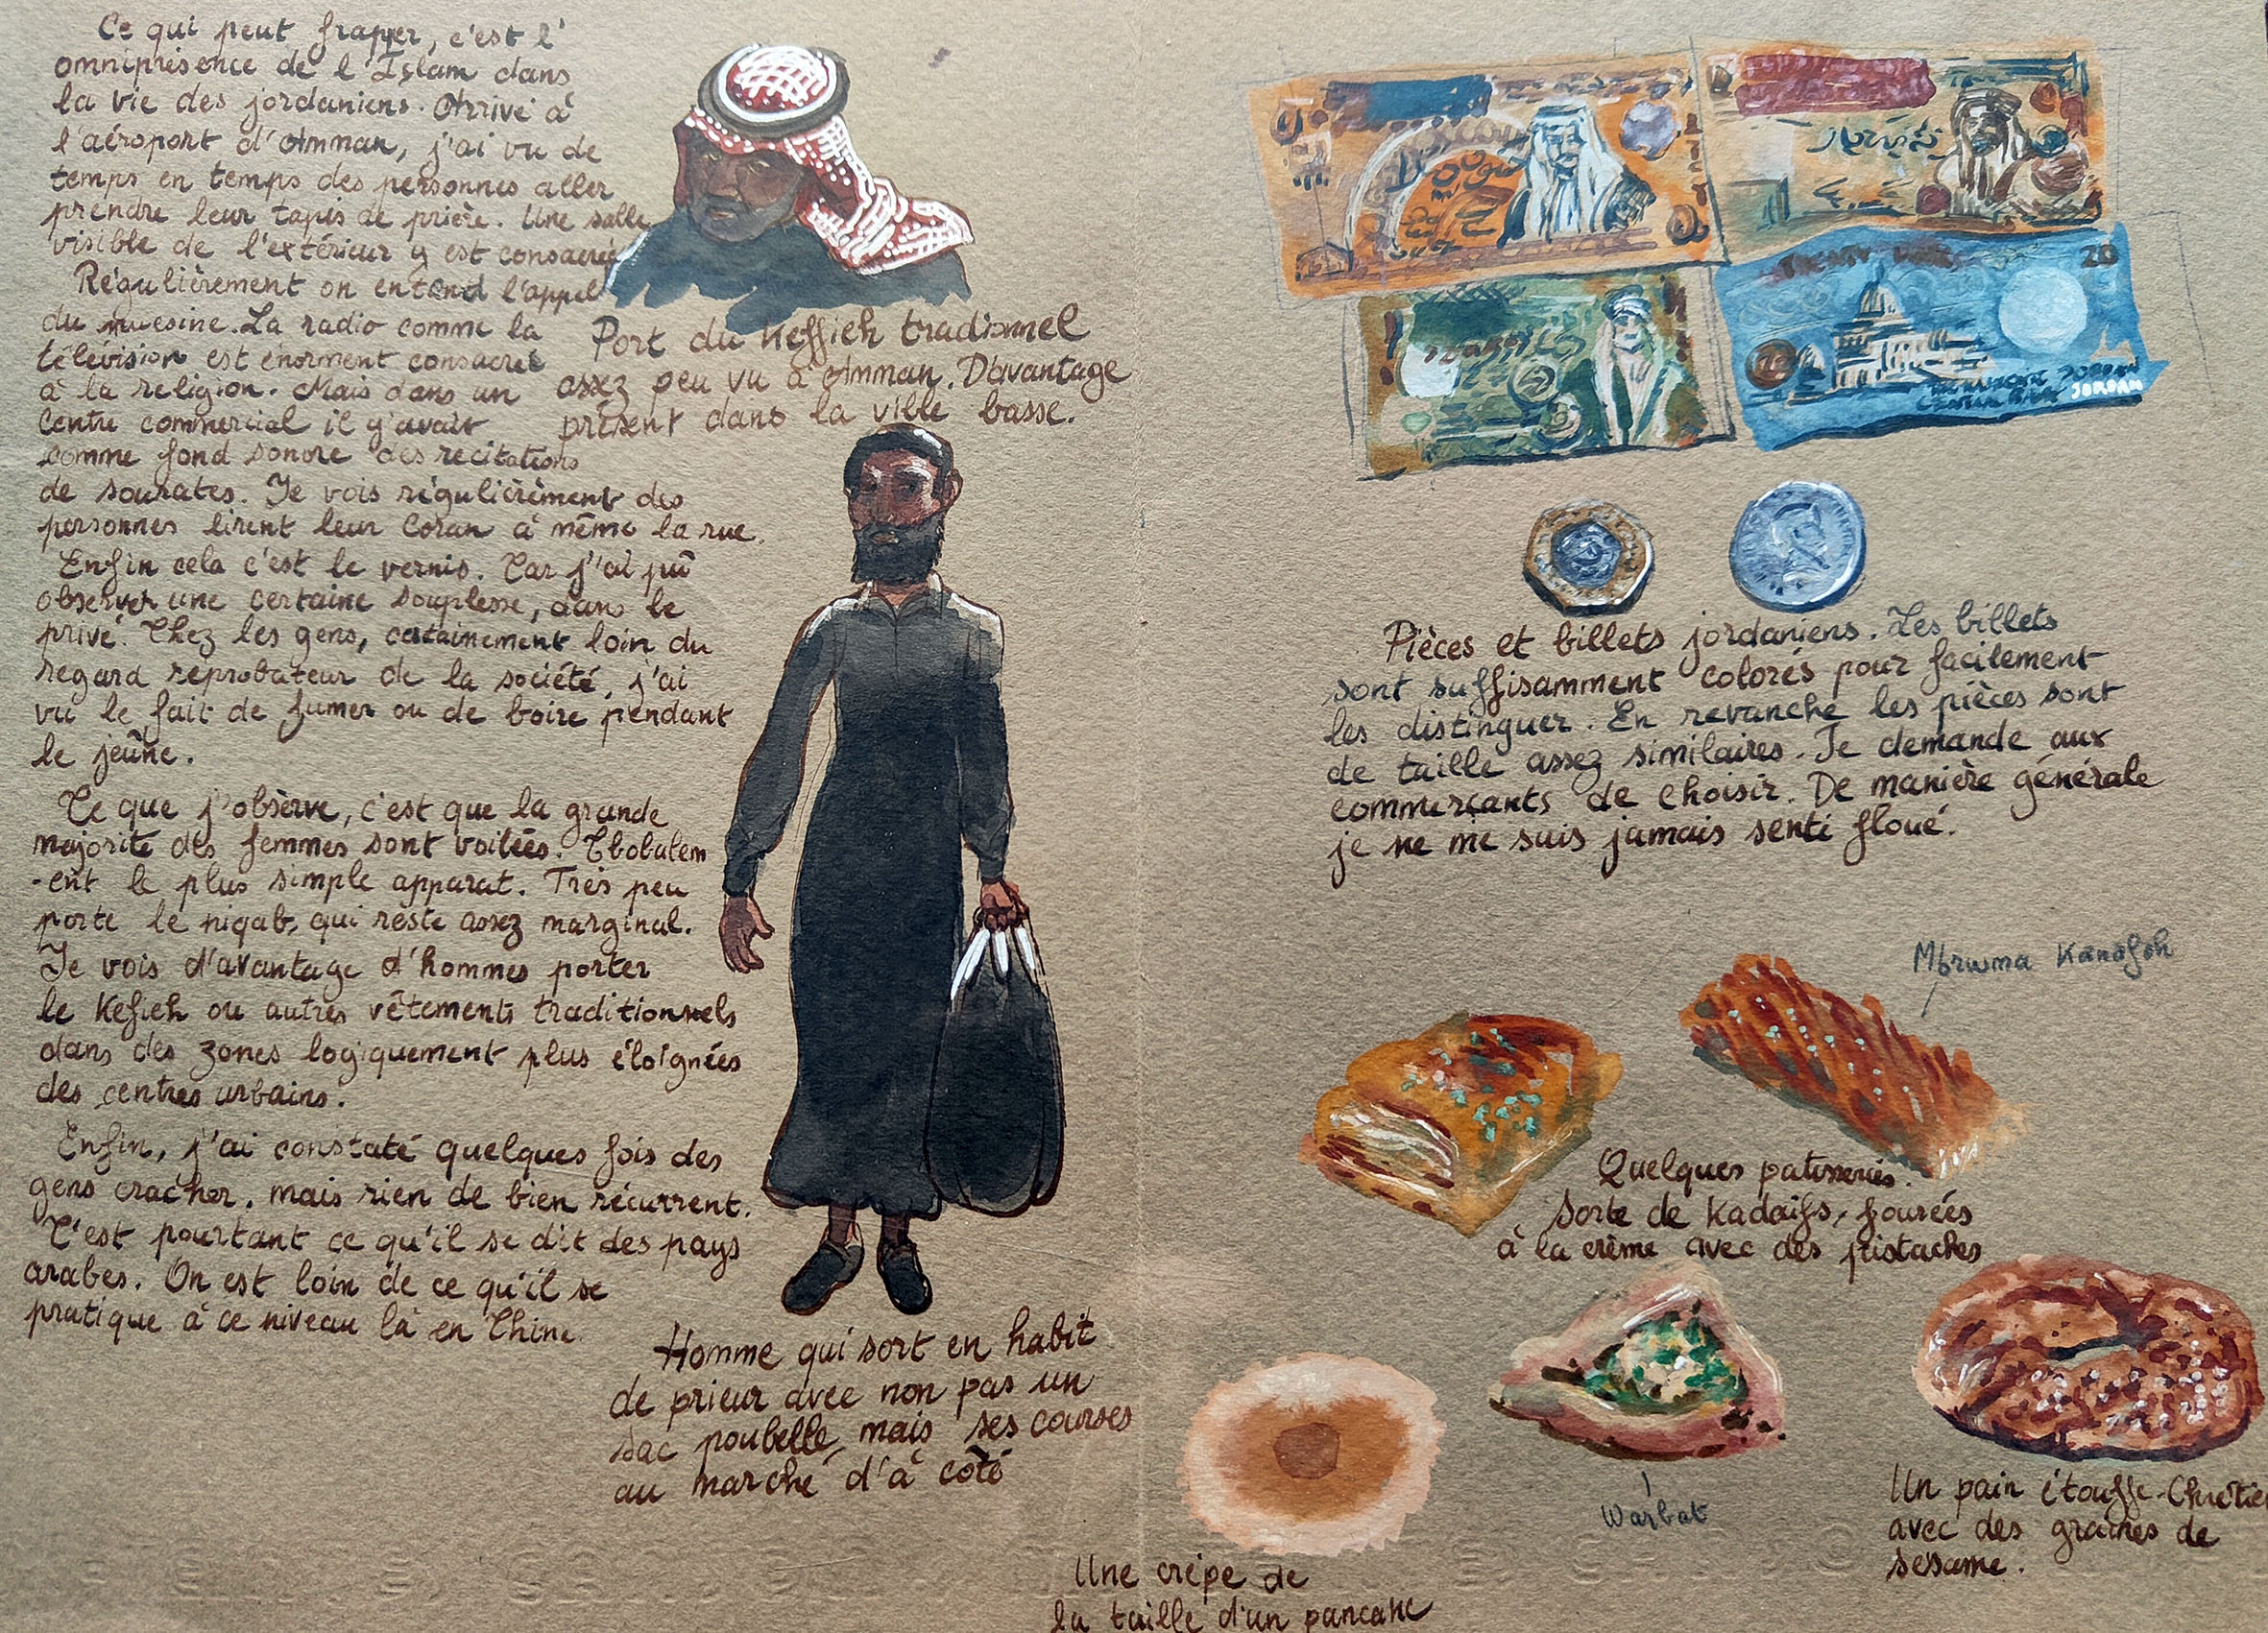 Ce qui peut frapper, c'est l'
omniprésence de l'Islam dans
la vie des jordaniens. Arrivé à
l'aéroport d'Amman, j'ai vu de
temps en temps des personnes aller
prendre leur tapis de prière. Une salle
visible de l'extérieur y est consacrée
Régulièrement on entend l'appel
du muesine. La radio comme la
télévision est énorment consacré
à la religion. Mais dans un
centre commercial il y avait
comme fond sonore des recitations
de sourates. Je vois régulièrement des
personnes lirent leur Coran à même la rue.
Enfin cela c'est le vernis. Car j'ai pû
observer une certaine souplesse, dans le
privé. Chez les gens, certainement loin du
regard reprobateur de la société, j'ai
vu le fait de fumer ou de boire pendant
le jeûne.
Ce que j'observe, c'est que la grande
majorité des femmes sont voilées.
-ent le plus simple apparat. Très peu
porte le niqab, qui reste assez marginal.
Je vois d'avantage d'hommes porter
le Kefieh ou autres vêtements traditionnels
dans des zones logiquement plus éloignées
des centres urbains.
Enfin, j'ai constaté quelques fois des
gens cracher, mais rien de bien récurrent.
C'est pourtant ce qu'il se dit des pays
arabes. On est loin de ce qu'il se
pratique à ce niveau là en Chine.
Port du Keffieh tradionnel
assez peu vu à Amman. D'avantage
présent dans la ville basse.
Homme qui sort en habit
de prieur avec non pas un
sac poubelle, mais ses courses
au marché d'à côté
20
JORDAN
CENTRAL BANK JORDAN
Pièces et billets jordaniens. Les billets
sont suffisamment colorés pour facilement
les distinguer. En revanche les pièces sont
de taille assez similaires. Je demande aux
commerçants de choisir. De manière générale
je ne me suis jamais senti floué.
Mbrwma Kanafeh
Quelques patisseries.
Sorte de Kadaïfs, fourées
à la crème avec des pistaches
Warbat
Une crêpe de
la taille d'un pancake
Un pain étouffe-Chrétie
avec des graines de
sesame.